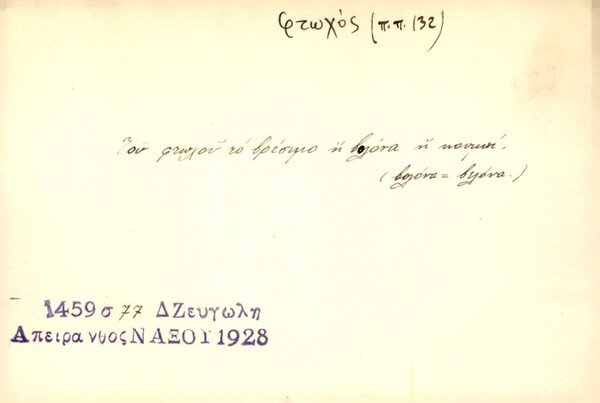 φτωχός (π.π. 132)
Τοῦ φτωχοῦ τό βρέσιμο ἤ βολόνα ἤ καρφί.
(βολόνα = βελόνα.)
1459 σ 77 ΔΖευγωλη
Απειρανθος ΝΑΞΟΥ 1928